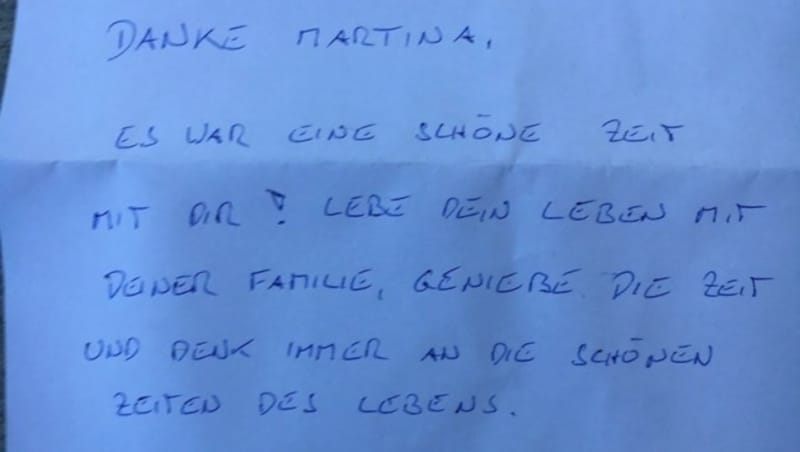 DANKE MARTINA,
ES WAR EINE SCHÖNE ZEIT
MIT DIR! LEBE DEIN LEBEN MIT
DEINER FAMILIE, GENIEßE DIE ZEIT
UND DENK IMMER AN DIE SCHÖNEN
ZEITEN DES LEBENS.